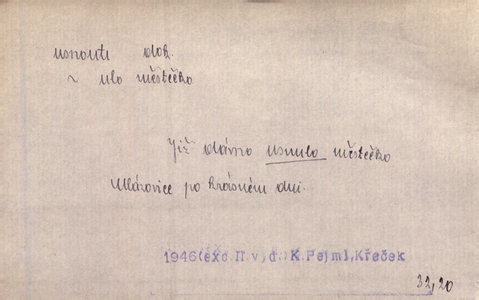 usnouti dok.
~ ulo městečko
Již dávno usnulo městečko
Mlázovice po krásném dni.
1946(exc.II.v)d.) K.Pejml,Křeček
32,20